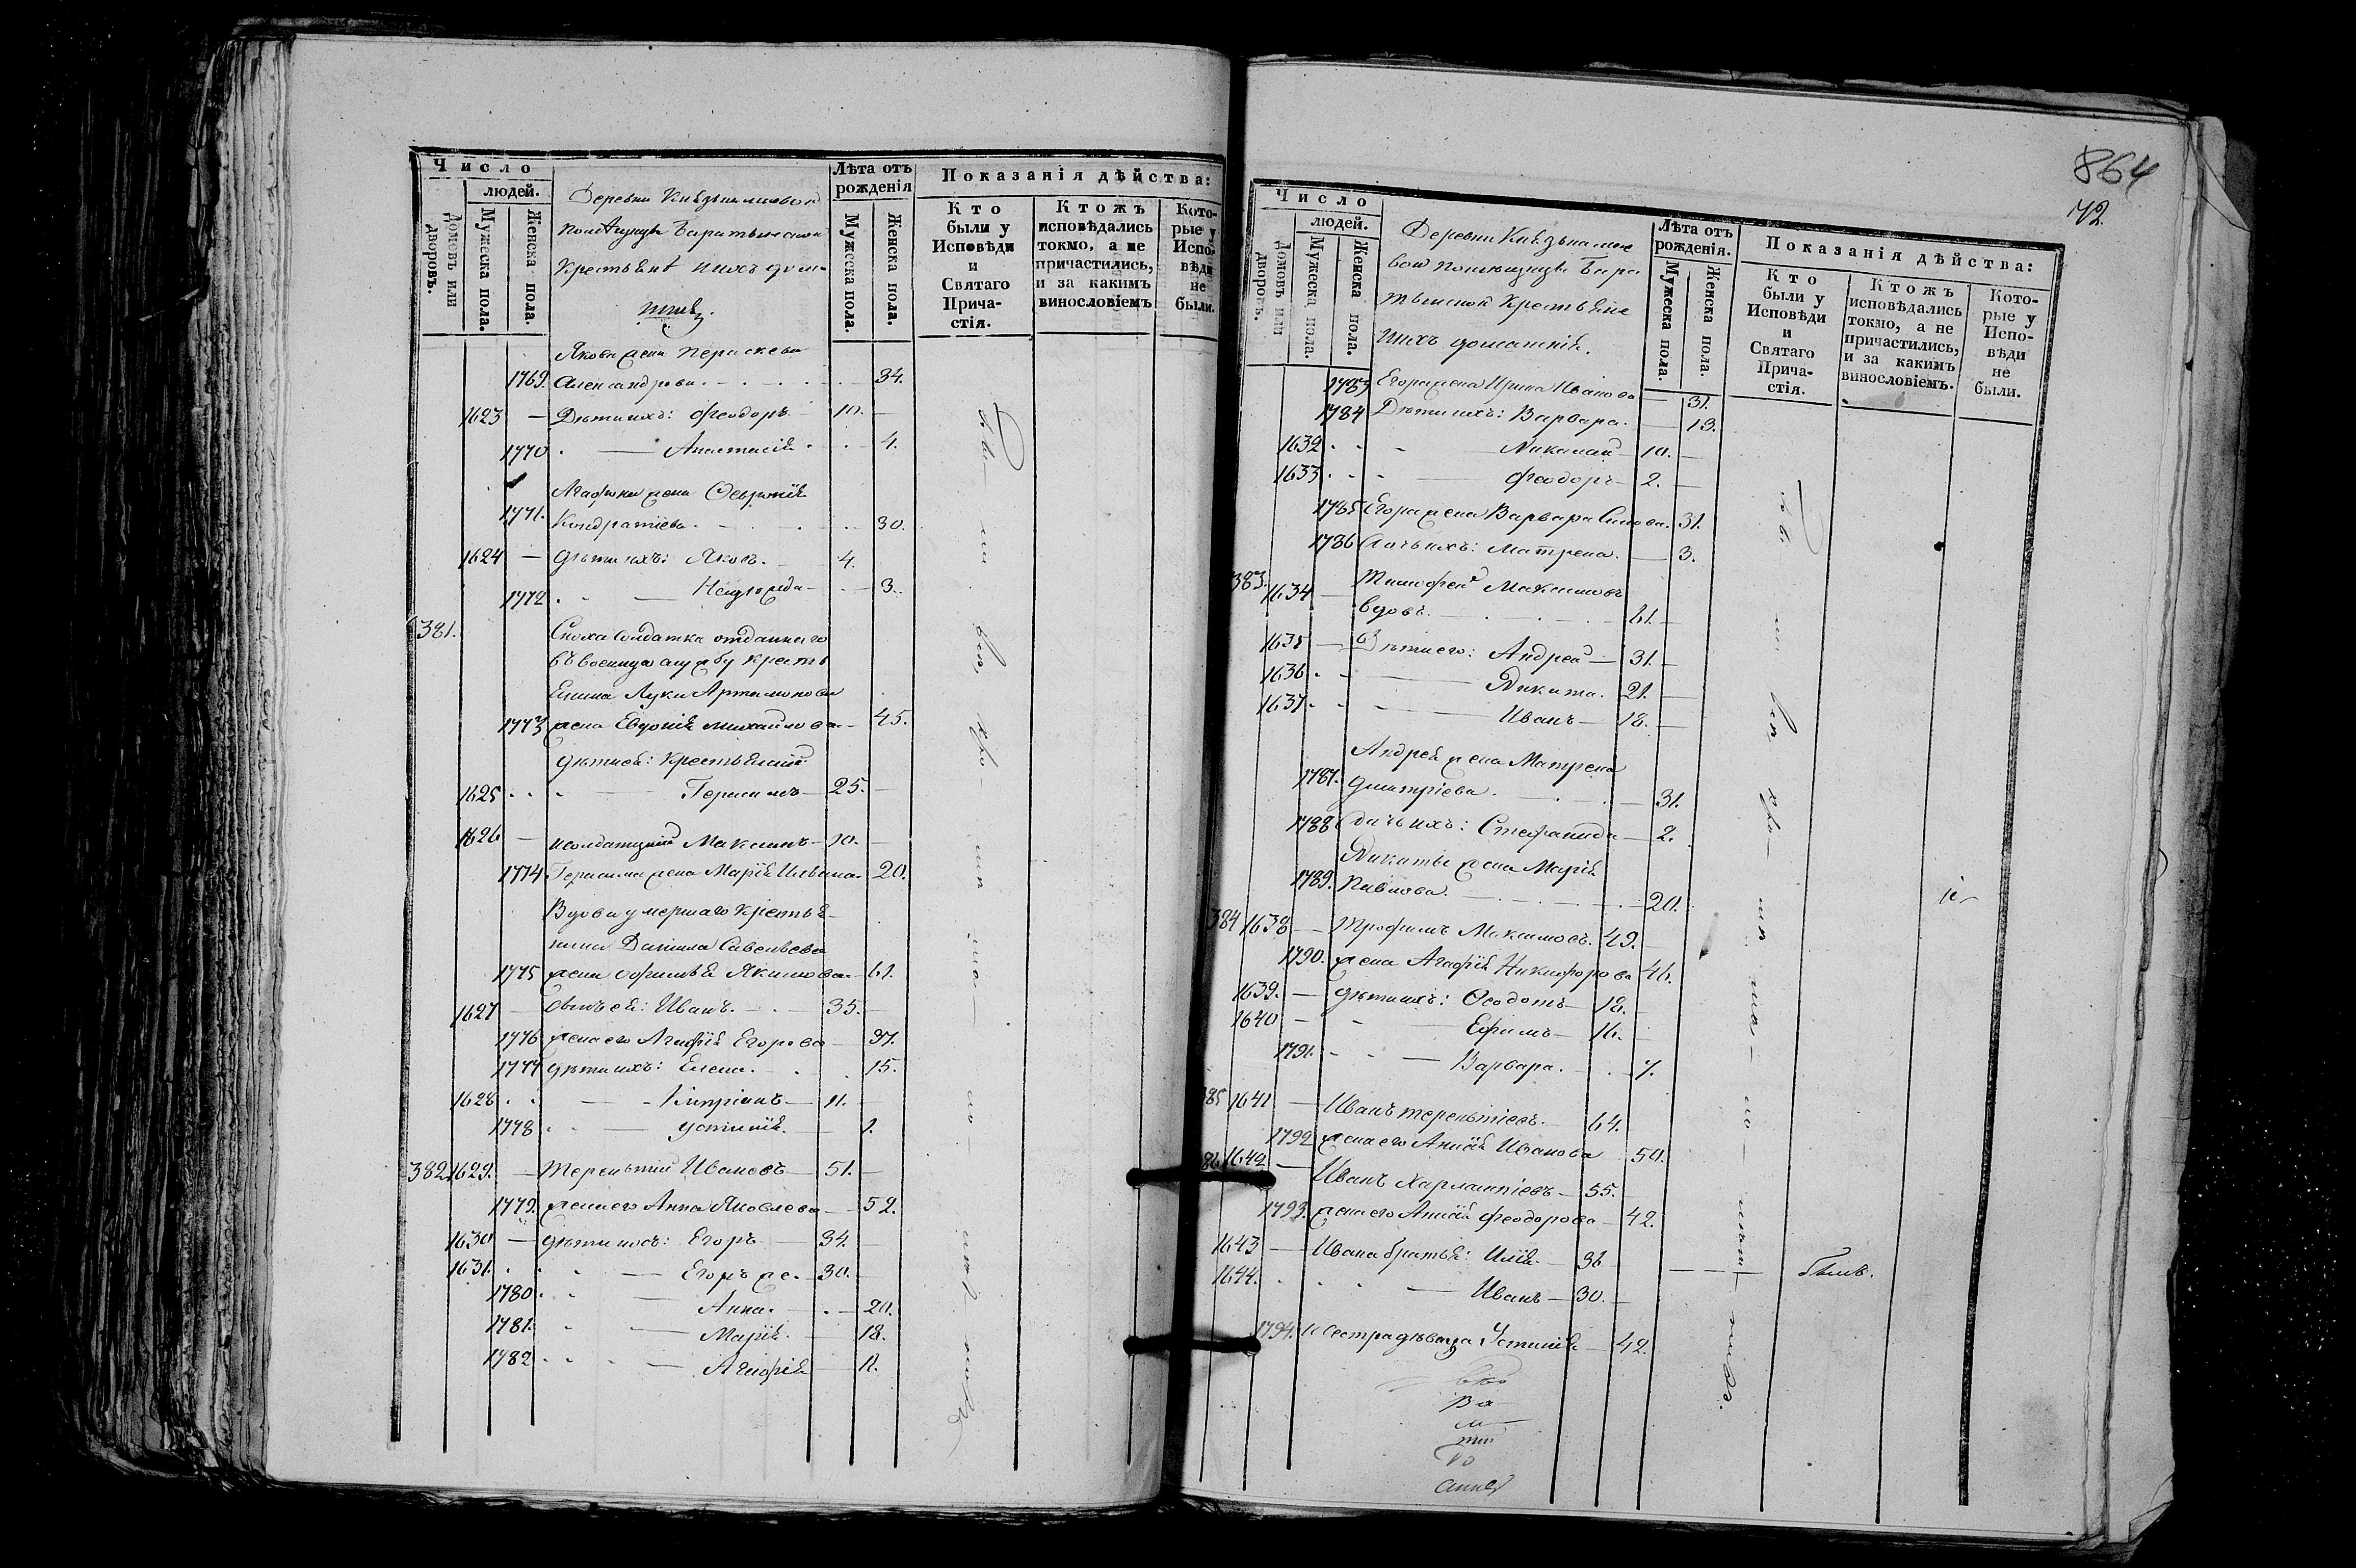 Число
людей.
Домовъ или дворовъ.
Мужеска пола.
Женска пола.
Деревни Княземиловой
помѣщицы Баратынской
Крестьянѣ ихъ дома
шніе.
Лѣта отъ рожденія
Мужеска пола.
Женска пола.
Показанія дѣйства:
Кто были у Исповѣди и Святаго Причастія.
Ктожъ исповѣдались токмо, а не причастились, и за какимъ винословіемъ
Которые у Исповѣди не были.
Якова жена Параскева
1769. Александрова. 34.
1623 Дѣти ихъ: Феодоръ 10.
1770 Анастасія 4.
Агафона жена Февронія
1771. Кондратіева. 30.
1624 Дѣти ихъ: Яковъ. 4.
1772 3.
381. Сноха Солдатка отданнаго
въ военную службу крестья
нина Луки Артамонова
1773 жена Евдокія Михайлова 45.
Дѣти ей: Крестьянскій
1625 Герасимъ 25.
1626 и солдатскій Максимъ 10.
1774 Герасима жена Марія 20.
Вдова умершаго крестья
нина Даніила Савельева
1775 жена Якимова 61.
1627 Сынъ ей: Иванъ. 35.
1776 жена его Агафія Егорова 37.
1777 Дѣти ихъ: Елена. 15.
1628 Кипріанъ 11.
1778 Устинія. 1.
382 1629. Терентій Ивановъ 51.
1779. жена его Анна Яковлева 52.
1630 Дѣти ихъ: Егоръ 34.
1631. Егоръ же. 30.
1780 Анна. 20.
1781. Марія. 18.
1782 Агафія 11.
864
72.
Число
людей.
Домовъ или дворовъ.
Мужеска пола.
Женска пола.
Деревни
вой помѣщицы Бара
тынской Крестьяне
ихъ домашнія.
Лѣта отъ рожденія.
Мужеска пола.
Женска пола.
Показанія дѣйства:
Кто были у Исповѣди и Святаго Причастія.
Ктожъ исповѣдались токмо, а не причастились, и за какимъ винословіемъ.
Которые у Исповѣди не были.
1783 Егора жена Ирина Иванова 31.
1784 Дѣти ихъ: Варвара. 13.
1632 Николай 10.
1633 Феодоръ 2.
1785 Егора жена Варвара 31.
1786 Дочь ихъ: Матрена. 3.
383. 1634 Тимофей Максимовъ
вдовъ. 61.
1635 Дѣти его: Андрей 31.
1636 Никита. 21.
1637. Иванъ 18.
Андрея жена Матрена
1787. Дмитріева. 31.
1788 Дочь ихъ: Стефанида 2.
Никиты жена Марія
1789. Павлова. 20.
384 1638 Трофимъ Максимовъ. 49.
1790. жена Агафія Никифорова 46.
1639. Дѣти ихъ: Феодотъ 18.
1640 Ефимъ 16.
1791. Варвара. 7.
385 1641 Иванъ Терентіевъ. 64.
1792 жена его Анисія Иванова 50.
386 1642 Иванъ Харлампіевъ 55.
1793. жена его Анисія Феодорова 42.
1643 Ивана братья: Илія 36
1644. Иванъ 30.
1794. и сестра дѣвица Устинія 42.